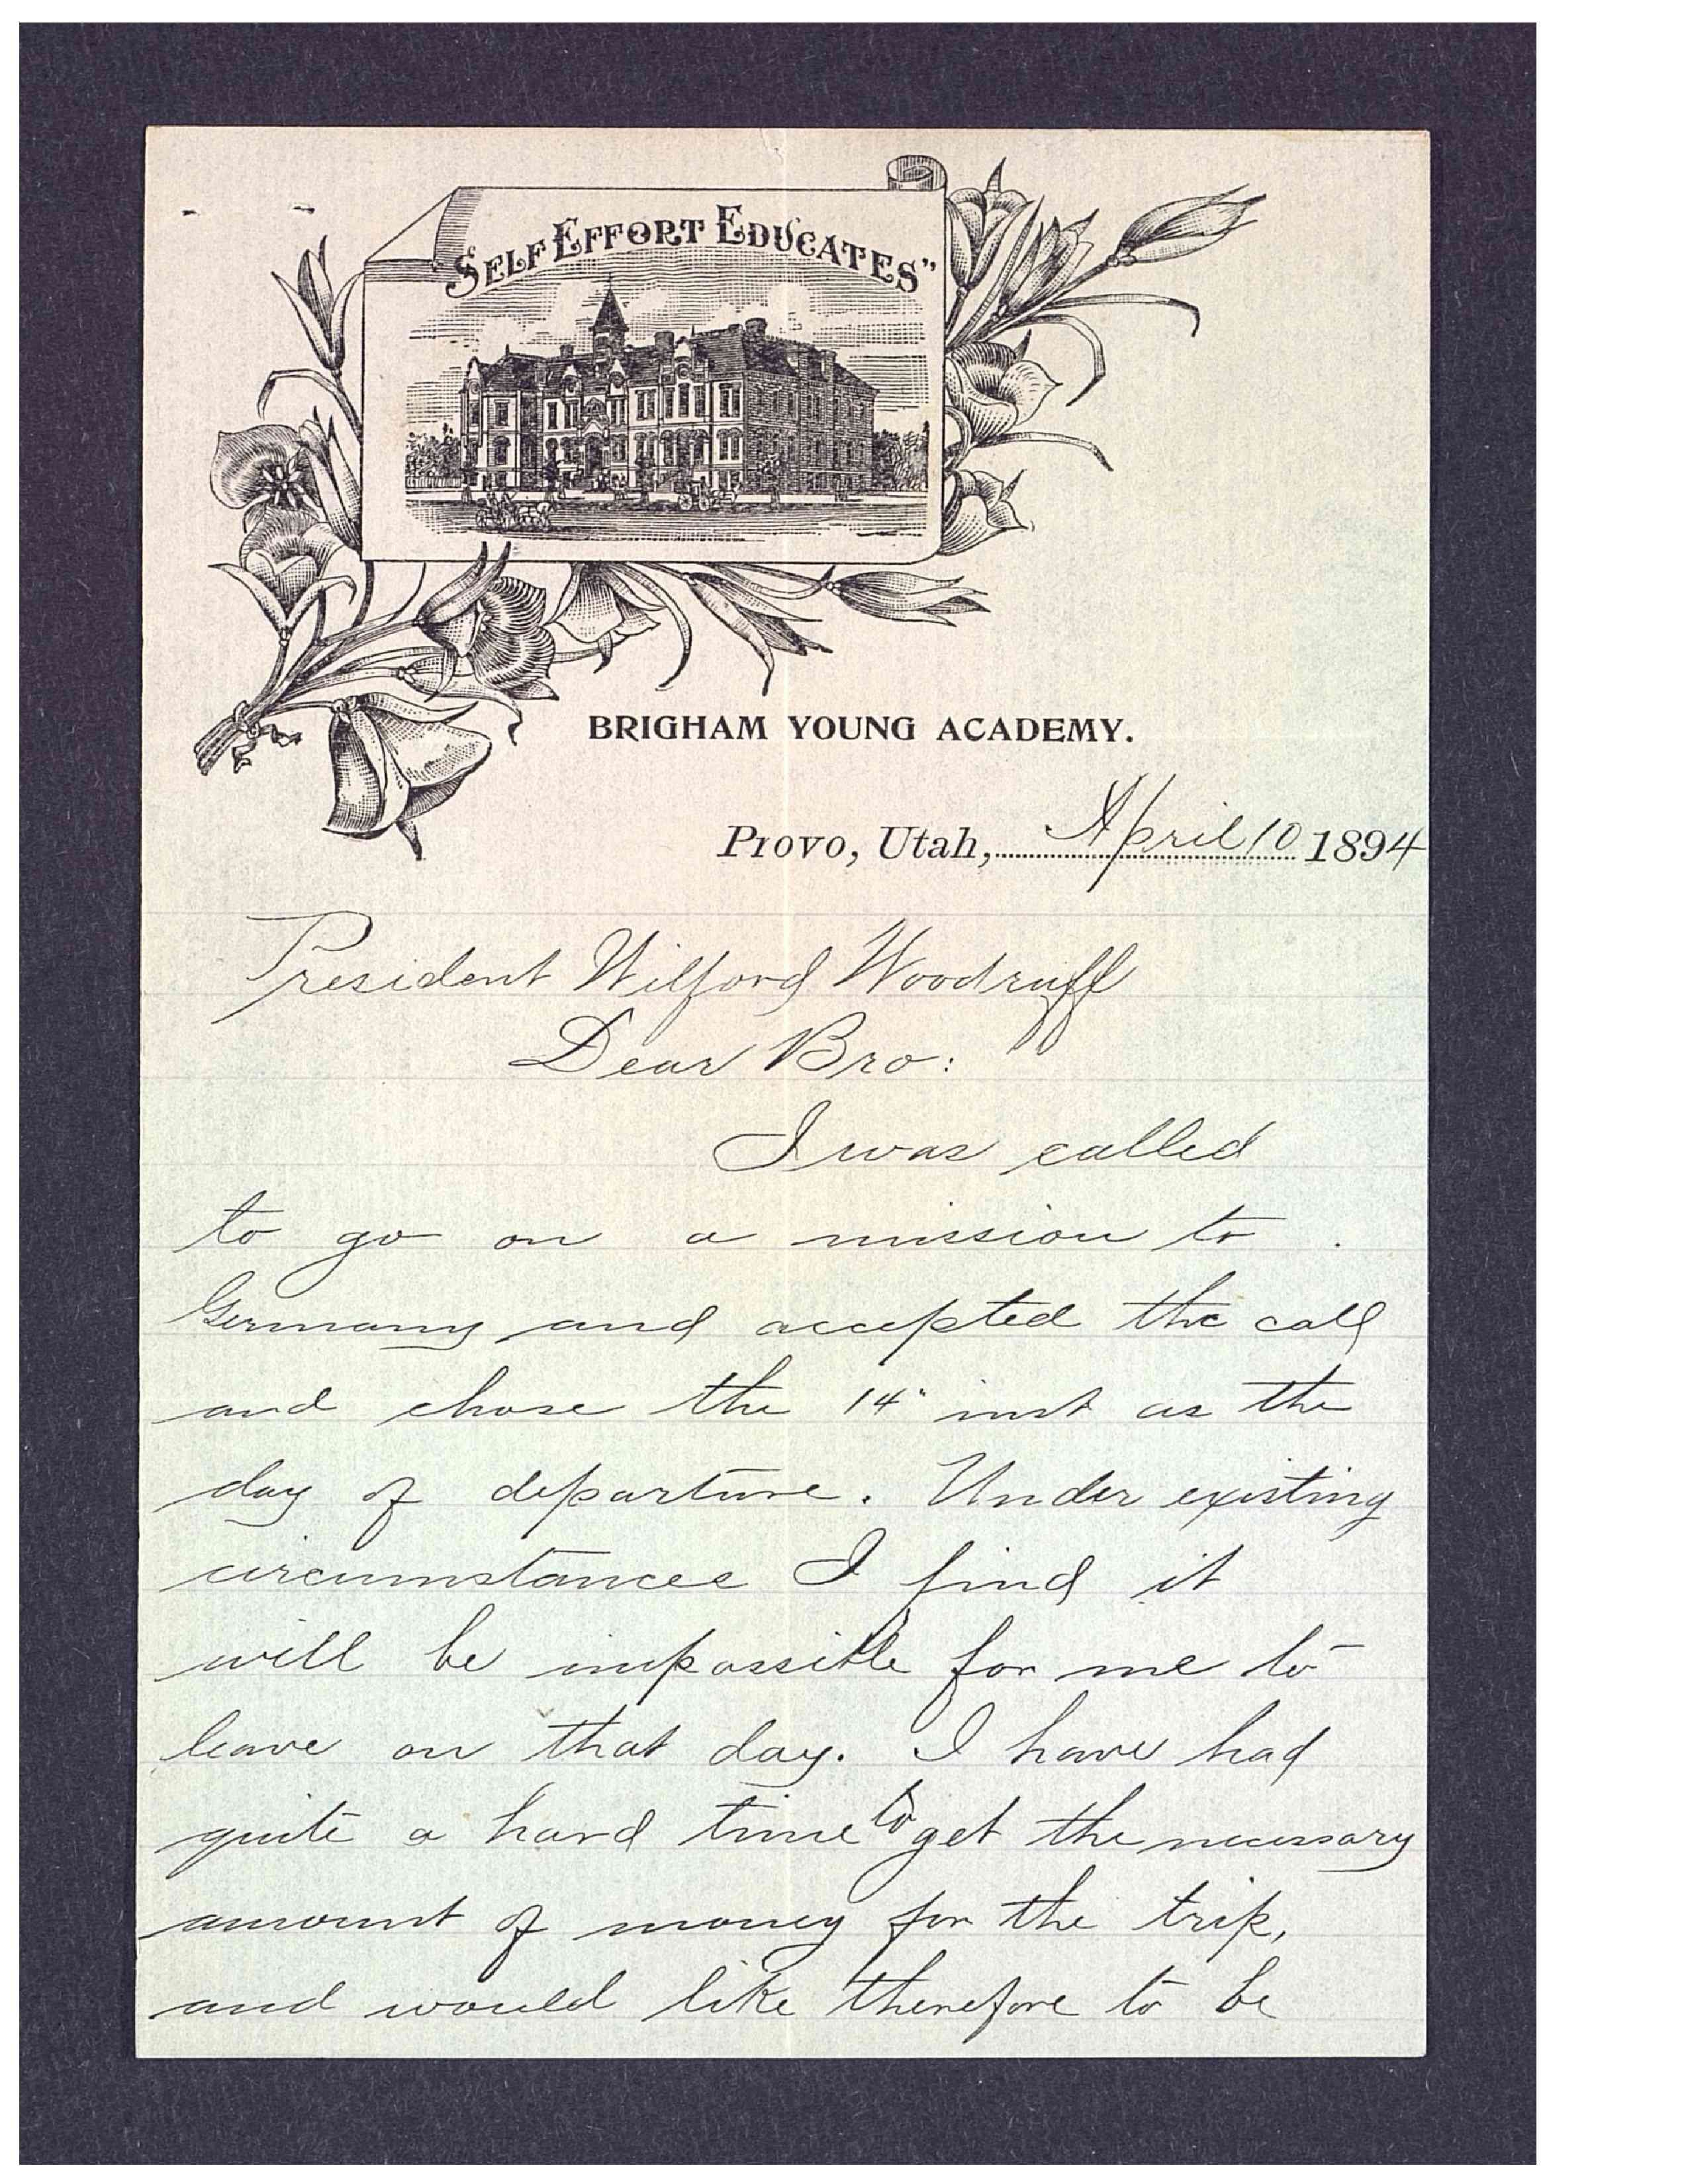 "Self Effort Educates"
BRIGHAM YOUNG ACADEMY.
Provo, Utah, April 10 1894
President Wilford Woodruff
Dear Bro:
I was called
to go on a mission to
Germany and accepted the call
and chose the 14" inst as the
day of departure. Under existing
circumstances I find it
will be impossible for me to
leave on that day. I have had
quite a hard time to get the necessary
amount of money for the trip,
and would like therefore to be